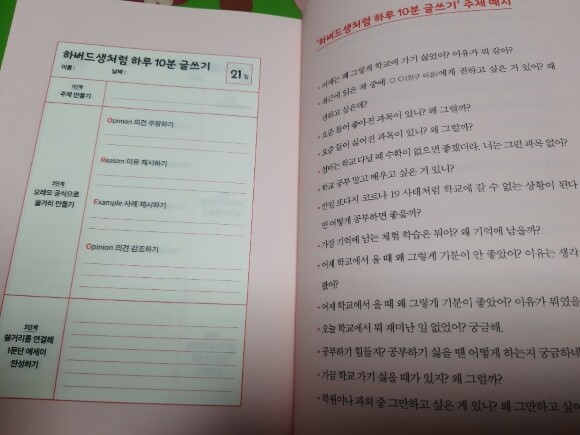 하버드생처럼 하루 10분 글쓰기
이름 : 날짜 :
21일
1단계
주제 만들기
2단계
오레오 공식으로
쓸거리 만들기
Opinion 의견 주장하기
Reason 이유 제시하기
Example 사례 제시하기
Opinion 의견 강조하기
3단계
쓸거리를 연결해
1문단 에세이
완성하기
'하버드생처럼 하루 10분 글쓰기' 주제 예시
• 어제는 왜 그렇게 학교에 가기 싫었어? 이유가 뭐 같아?
• 최근에 읽은 책 중에 ○○(친구 이름)에게 권하고 싶은 거 있어? 왜
권하고 싶은데?
• 요즘 들어 좋아진 과목이 있니? 왜 그럴까?
• 요즘 들어 싫어진 과목이 있니? 왜 그럴까?
• 엄마는 학교 다닐 때 수학이 없으면 좋겠더라. 너는 그런 과목 없어?
• 학교 공부 말고 배우고 싶은 거 있니?
• 만일 또다시 코로나 19 사태처럼 학교에 갈 수 없는 상황이 된다
면 어떻게 공부하면 좋을까?
• 가장 기억에 남는 체험 학습은 뭐야? 왜 기억에 남을까?
• 어제 학교에서 올 때 왜 그렇게 기분이 안 좋았어? 이유는 생각
해봤어?
• 어제 학교에서 올 때 왜 그렇게 기분이 좋았어? 이유가 뭐였을
• 오늘 학교에서 뭐 재미난 일 없었어? 궁금해.
• 공부하기 힘들지? 공부하기 싫을 땐 어떻게 하는지 궁금하네
• 가끔 학교 가기 싫을 때가 있지? 왜 그럴까?
• 학원이나 과외 중 그만하고 싶은 게 있니? 왜 그만하고 싶어